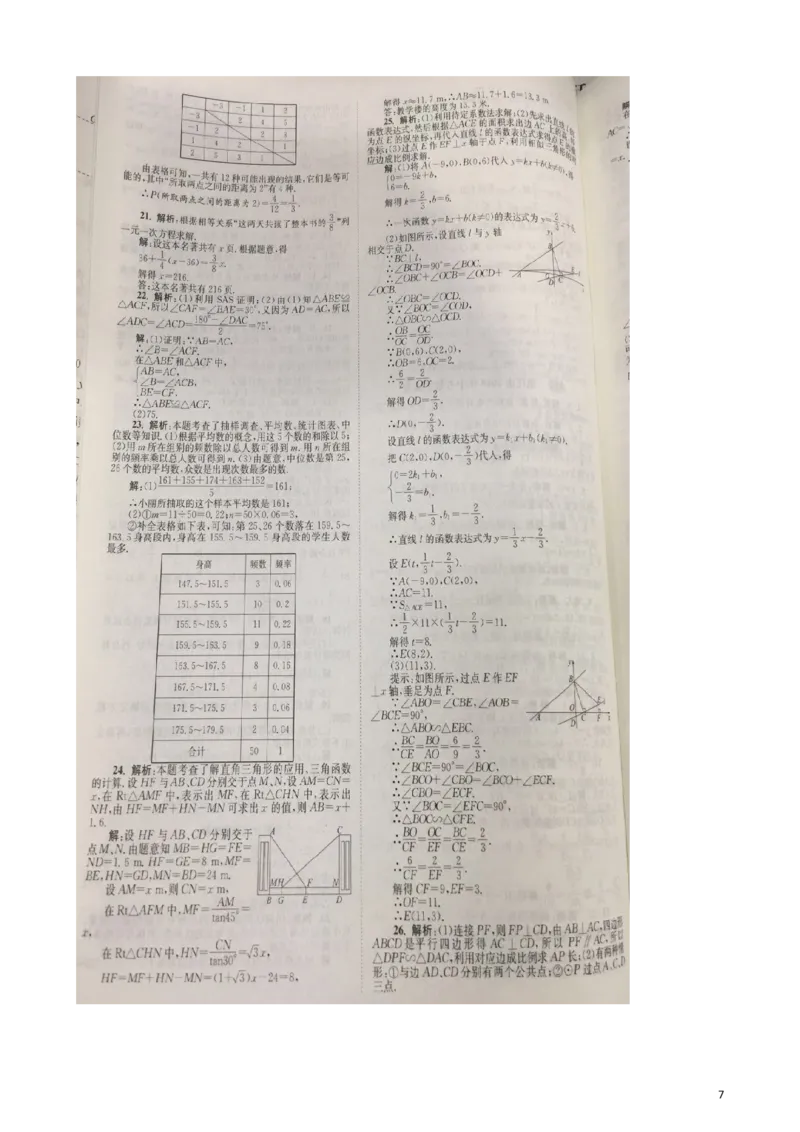 -3 -1 4 2
-3
-1 2
4 2
2 5 3
由表格可知,一共有12种可能出现的结果,它们是等可
能的,其中“所取两点之间的距离为2”有4种.
∴P(所取两点之间的距离为2)=4/12=1/3.
21. 解析:根据相等关系“这两天共读了整本书的3/8”列
一元一次方程求解.
解:设这本名著共有x页.根据题意,得
36+1/4(x-36)=3/8x.
解得x=216.
答:这本名著共有216页.
22. 解析:(1)利用SAS证明;(2)由(1)知△ABE≌
△ACF,所以∠CAF=∠BAE=30°,又因为AD=AC,所以
∠ADC=∠ACD=(180°-∠DAC)/2=75°.
解:(1)证明:∵AB=AC,
∴∠B=∠ACF.
在△ABE和△ACF中,
AB=AC,
∠B=∠ACB,
BE=CF.
∴△ABE≌△ACF.
(2)75.
23. 解析:本题考查了抽样调查、平均数、统计图表、中
位数等知识.(1)根据平均数的概念,用这5个数的和除以5;
(2)用m所在组别的频数除以总人数可得到m.用n所在组
别的频率乘以总人数可得到n.(3)由题意,中位数是第25,
26个数的平均数,众数是出现次数最多的数.
解:(1)(161+155+174+163+152)/5=161;
∴小丽所抽取的这个样本平均数是161;
(2)①m=11÷50=0.22;n=50×0.06=3,
②补全表格如下表,可知:第25、26个数落在159.5~
163.5身高段内,身高在155.5~159.5身高段的学生人数
最多.
身高 频数 频率
147.5~151.5 3 0.06
151.5~155.5 10 0.2
155.5~159.5 11 0.22
159.5~163.5 9 0.18
163.5~167.5 8 0.16
167.5~171.5 4 0.08
171.5~175.5 3 0.06
175.5~179.5 2 0.04
合计 50 1
24. 解析:本题考查了解直角三角形的应用、三角函数
的计算.设HF与AB、CD分别交于点M、N,设AM=CN=
x,在Rt△AMF中,表示出MF、在Rt△CHN中,表示出
NH,由HF=MF+HN-MN可求出x的值,则AB=x+
1.6.
解:设HF与AB、CD分别交于
点M、N.由题意知MB=HG=FE=
ND=1.6 m. HF=GE=8 m,MF=
BE,HN=GD,MN=BD=24 m.
设AM=x m,则CN=x m,
在Rt△AFM中,MF=AM/tan45°=
x,
在Rt△CHN中,HN=CN/tan30°=√3x,
HF=MF+HN-MN=(1+√3)x-24=8,
A C
M H F N
B G E D
解得x≈11.7 m,∴AB≈11.7+1.6=13.3 m
答:教学楼的高度为13.3米.
25. 解析:(1)利用待定系数法求解;(2)先求出直线l的
函数表达式,然后根据△ACE的面积求出边AC上的高,即
为点E的纵坐标,再代入直线l的函数表达式求得点E的横
坐标;(3)过点E作EF⊥x轴于点F,利用相似三角形的对
应边成比例求解.
解:(1)将A(-9,0),B(0,6)代入y=kx+b(k≠0),得
0=-9k+b,
6=b.
解得k=2/3,b=6.
∴一次函数y=kx+b(k≠0)的表达式为y=2/3x+6.
(2)如图所示,设直线l与y轴
相交于点D.
∵BC⊥l,
∴∠BCD=90°=∠BOC.
∴∠OBC+∠OCB=∠OCD+
∠OCB.
∴∠OBC=∠OCD.
又∵∠BOC=∠COD,
∴△OBC∽△OCD.
∴OB/OC=OC/OD.
∵B(0,6),C(2,0),
∴OB=6,OC=2.
∴6/2=2/OD.
解得OD=2/3.
∴D(0,-2/3).
设直线l的函数表达式为y=k₁x+b₁(k₁≠0).
把C(2,0),D(0,-2/3)代入,得
0=2k₁+b₁,
-2/3=b₁.
解得k₁=1/3,b₁=-2/3.
∴直线l的函数表达式为y=1/3x-2/3.
设E(t,1/3t-2/3).
∵A(-9,0),C(2,0),
∴AC=11.
∵S△ACE=11,
∴1/2×11×(1/3t-2/3)=11.
解得t=8.
∴E(8,2).
(3)(11,3).
提示:如图所示,过点E作EF
⊥x轴,垂足为点F.
∵∠ABO=∠CBE,∠AOB=
∠BCE=90°,
∴△ABO∽△EBC.
∴BC/CE=BO/AO=6/9=2/3.
∵∠BCE=90°=∠BOC,
∴∠BCO+∠CBO=∠BCO+∠ECF.
∴∠CBO=∠ECF.
又∵∠BOC=∠EFC=90°,
∴△BOC∽△CFE.
∴BO/CF=OC/EF=BC/CE=2/3.
∴6/CF=2/EF=2/3.
解得CF=9,EF=3.
∴OF=11.
∴E(11,3).
26. 解析:(1)连接PF,则PF⊥CD,由AB⊥AC,四边形
ABCD是平行四边形得AC⊥CD,所以PF∥AC,所以
△DPF∽△DAC,利用对应边成比例求AP长;(2)有两种情
形:①与边AD、CD分别有两个公共点;②⊙P过点A、C、D
三点.
7